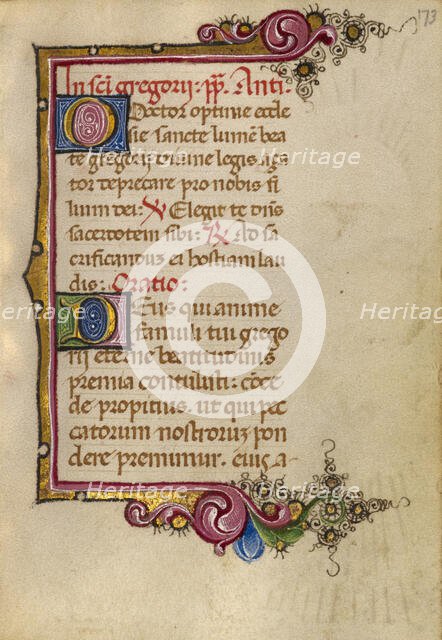 173
In sci gregorij: pp. Anti:
O Doctor optime eccle
sie sancte lumen bea
te gregori diuine legis ama
tor deprecare pro nobis fi
lium dei: V Elegit te dns
sacerdotem sibi: R Ad sa
crificanduz ei hostiam lau
dis: Oratio:
Deus qui anime
famuli tui grego
rij eterne beatitudinis
premia contulisti: conce
de propitius. ut qui pec
catorum nostroruz pon
dere premimur. eius a-
Heritage Heritage
Heritage
Heritage Heritage
Heritage
Heritage Heritage